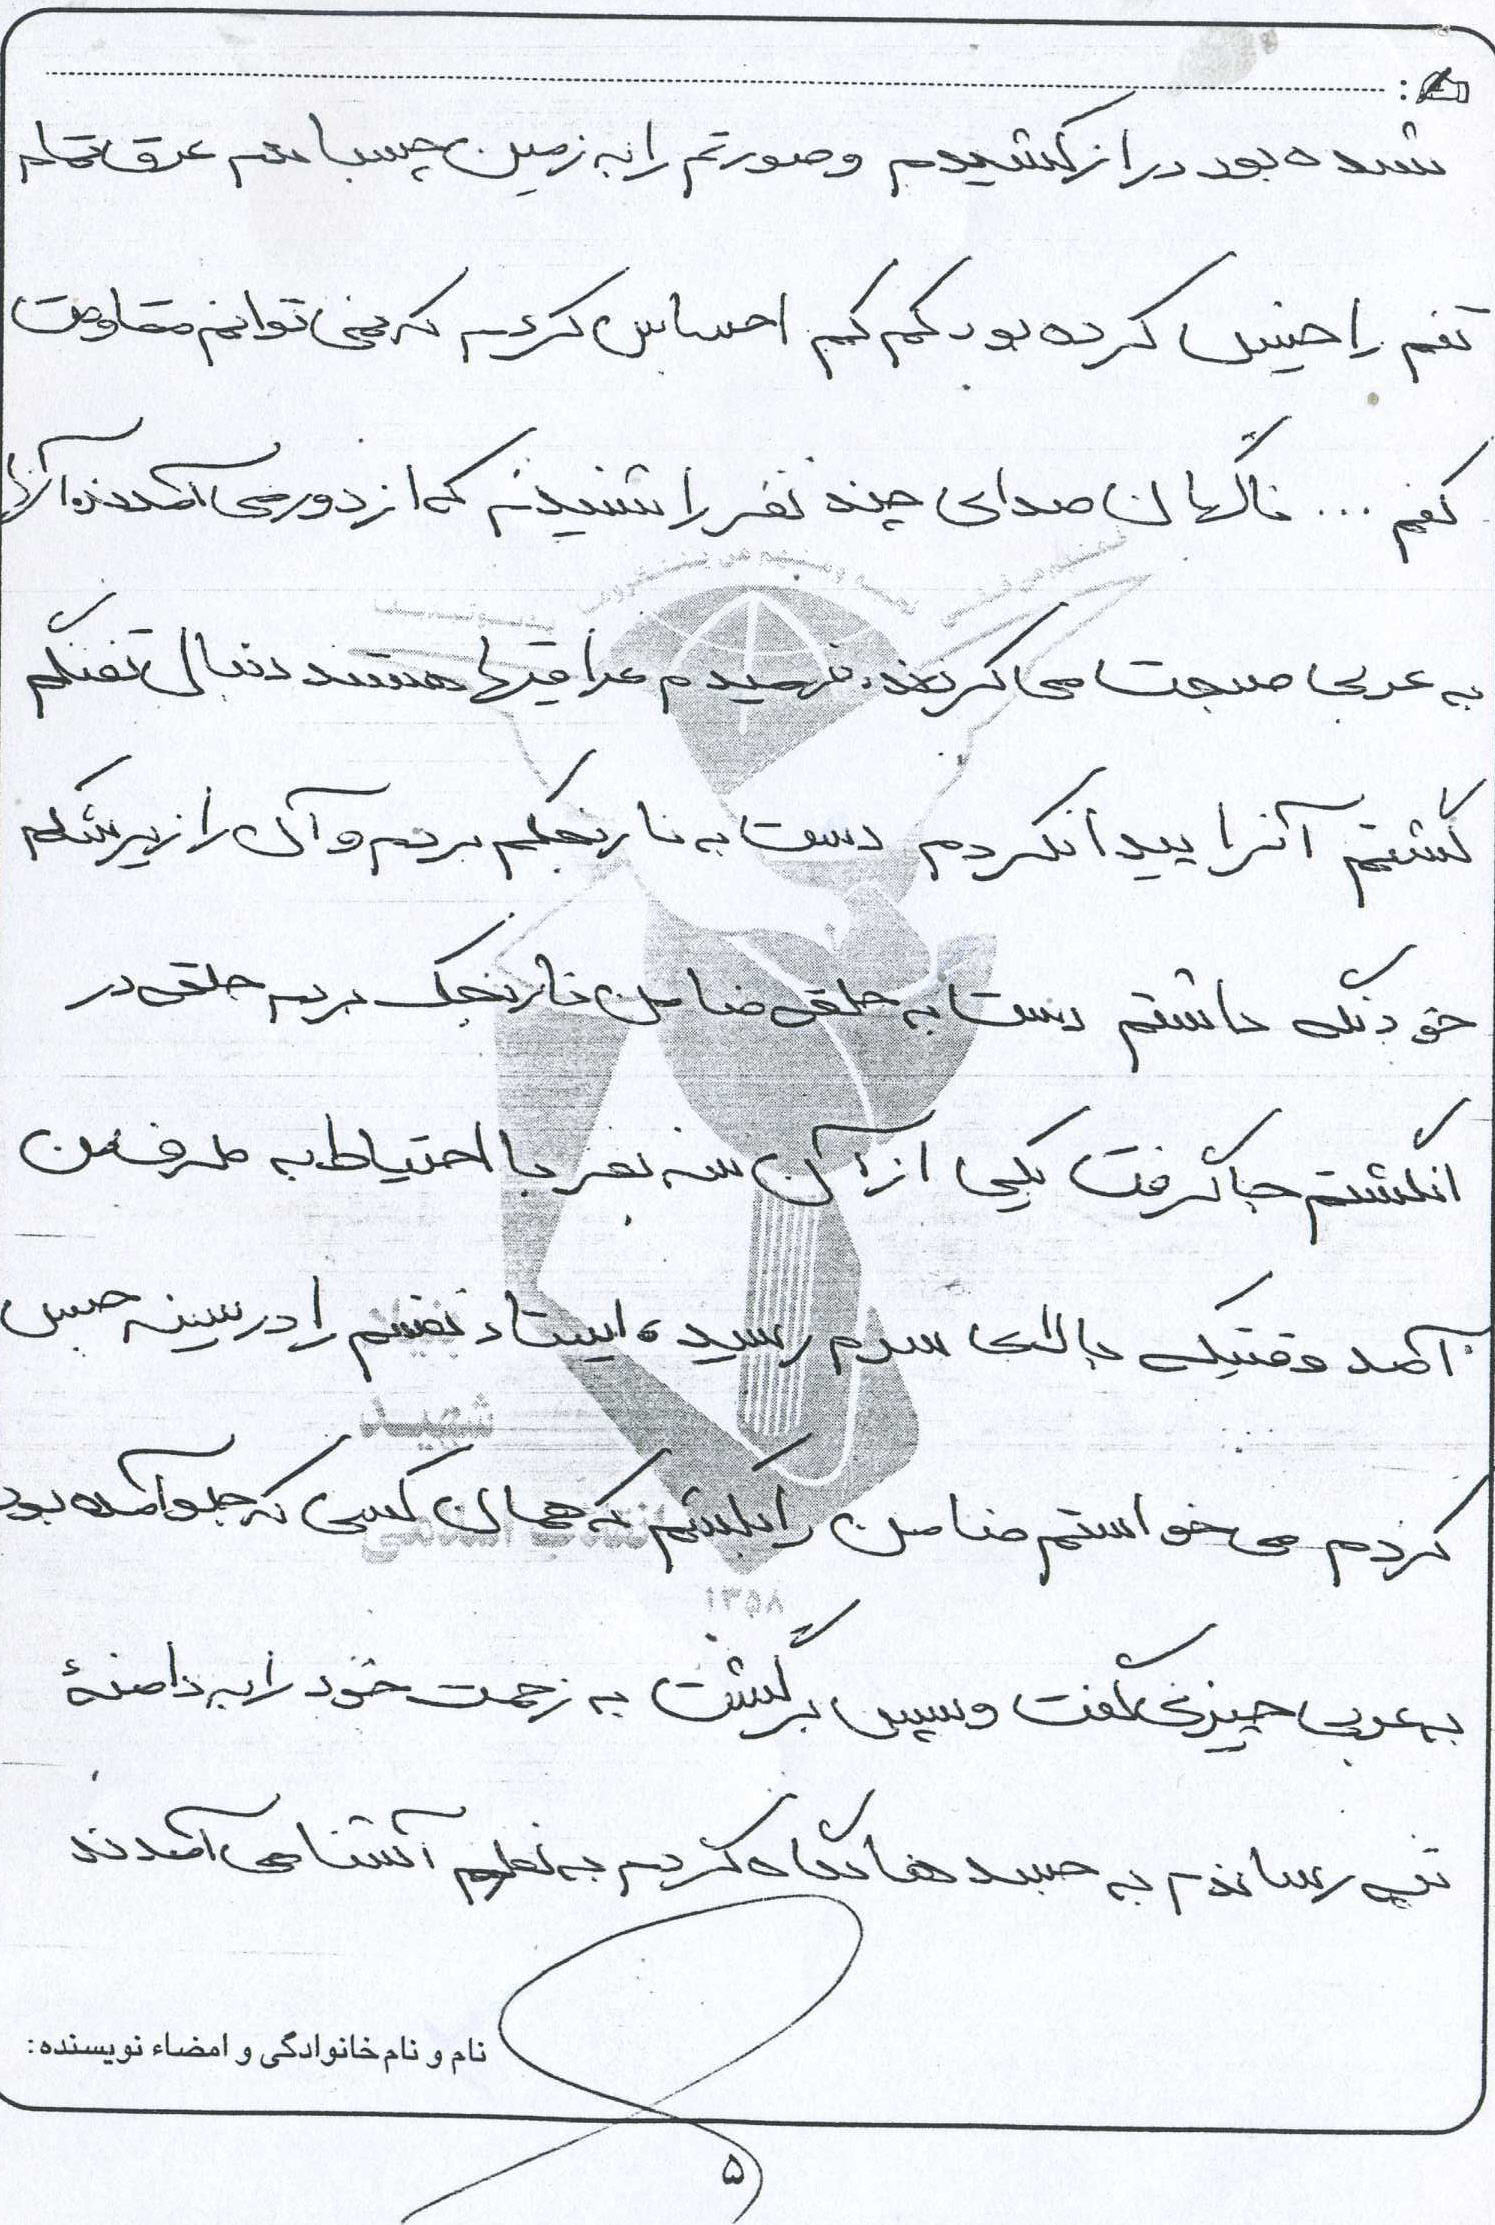 شده بود دراز کشیدم و صورتم را به زمین چسباندم عرق تمام
تنم را خیس کرده بود کم کم احساس کردم که نمی توانم مقاومت
کنم ... ناگهان صدای چند نفر را شنیدم که از دور می آمدند آنها
به عربی صحبت می کردند، فهمیدم عراقیها هستند دنبال تفنگم
گشتم آنرا پیدا نکردم دست به نارنجکم بردم و آن را زیر شکم
خود نگه داشتم دست به حلقه ضامن نارنجک بردم حلقه در
انگشتم جا گرفت یکی از آن سه نفر با احتیاط به طرف من
آمد وقتیکه بالای سرم رسید، ایستاد نفسم را در سینه حبس
کردم می خواستم ضامن را بکشم که همان کسی که جلو آمده بود
به عربی چیزی گفت و سپس برگشت به زحمت خود را به دامنهٔ
تپه رساندم به جسدها نگاه کردم به نظرم آشنا می آمدند
شهید
۱۳۵۸
نام و نام خانوادگی و امضاء نویسنده:
۵